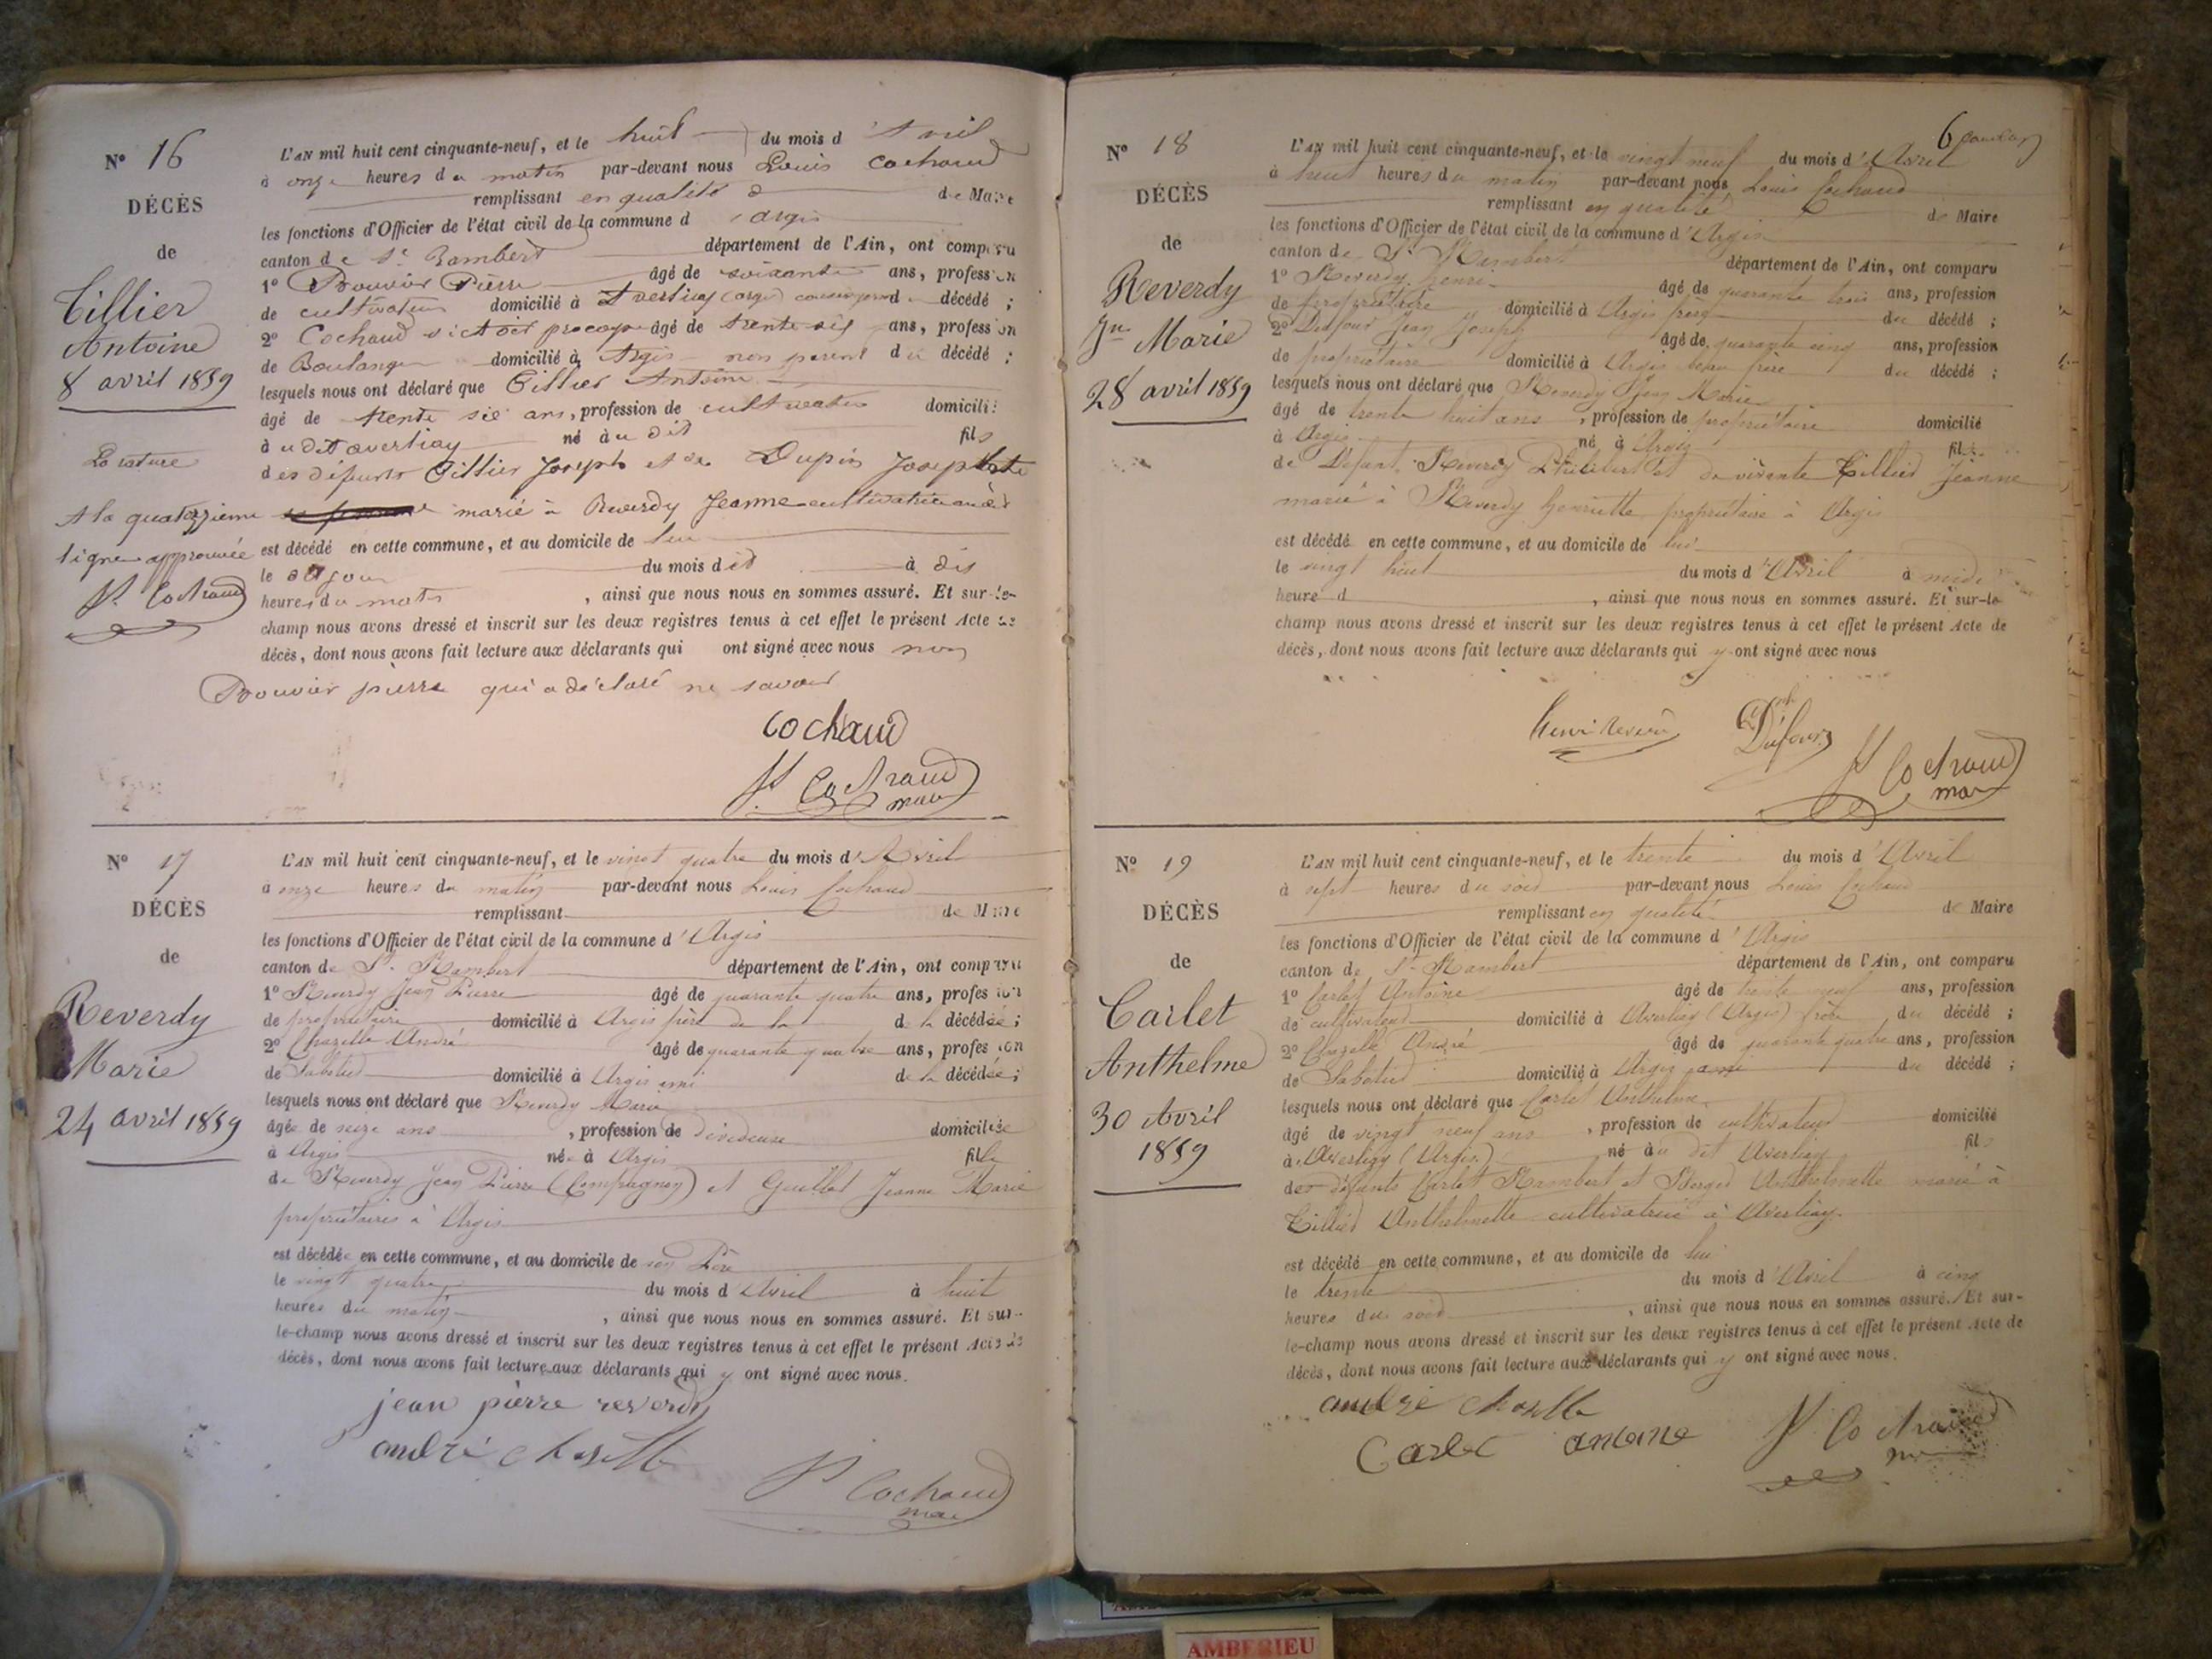 N° 16
DÉCÈS
de
Tillier
Antoine
8 avril 1859
La rature
A la quatorzieme
ligne approuvée
Cochaud
L'AN mil huit cent cinquante-neuf, et le huit du mois d'Avril
à onze heures du matin par-devant nous Louis Cochaud
remplissant en qualité de Maire
les fonctions d'Officier de l'état civil de la commune d'argis
canton de St Rambert département de l'Ain, ont comparu
1° Bouvier Pierre âgé de soixante ans, profession
de cultivateur domicilié à Averliay (argis) décédé ;
2° Cochaud victor procope âgé de trente six ans, profession
de Boulanger domicilié à Argis non parent du décédé ;
lesquels nous ont déclaré que Tillier Antoine
âgé de trente six ans, profession de cultivateur domicilié
à udit averliay né àu dit fils
des défunts Tillier Joseph et de Dupin Josephte
marié à Reverdy Jeanne cultivatrice
est décédé en cette commune, et au domicile de lui
le dit jour du mois dit à dix
heures du matin, ainsi que nous nous en sommes assuré. Et sur-le-
champ nous avons dressé et inscrit sur les deux registres tenus à cet effet le présent Acte de
décès, dont nous avons fait lecture aux déclarants qui ont signé avec nous non
Bouvier pierre qui a déclaré ne savoir
Cochaud
Cochaud
maire
N° 17
DÉCÈS
de
Reverdy
Marie
24 avril 1859
L'AN mil huit cent cinquante-neuf, et le vingt quatre du mois d'Avril
à onze heures du matin par-devant nous Louis Cochaud
remplissant de Maire
les fonctions d'Officier de l'état civil de la commune d'Argis
canton de St. Rambert département de l'Ain, ont comparu
1° Reverdy Jean Pierre âgé de quarante quatre ans, profession
de propriétaire domicilié à Argis père de la de la décédée ;
2° Chazelle André âgé de quarante quatre ans, profession
de Sabotier domicilié à Argis ami de la décédée ;
lesquels nous ont déclaré que Reverdy Marie
âgée de seize ans, profession de dévideuse domiciliée
à Argis née à Argis fille
de Reverdy Jean Pierre (Compagnon) et Guillet Jeanne Marie
propriétaires à Argis
est décédée en cette commune, et au domicile de son Père
le vingt quatre du mois d'Avril à huit
heures du matin, ainsi que nous nous en sommes assuré. Et sur-
le-champ nous avons dressé et inscrit sur les deux registres tenus à cet effet le présent Acte de
décès, dont nous avons fait lecture aux déclarants qui y ont signé avec nous.
jean pièrre reverdy
andré chaselle
Cochaud
maire
6
N° 18
DÉCÈS
de
Reverdy
Jn Marie
28 avril 1859
L'AN mil huit cent cinquante-neuf, et le vingt neuf du mois d'Avril
à huit heures du matin par-devant nous Louis Cochaud
remplissant en qualité de Maire
les fonctions d'Officier de l'état civil de la commune d'Argis
canton de St Rambert département de l'Ain, ont comparu
1° Reverdy henri âgé de quarante trois ans, profession
de propriétaire domicilié à Argis frère du décédé ;
2° Dufour Jean Joseph âgé de quarante cinq ans, profession
de propriétaire domicilié à Argis beau frère du décédé ;
lesquels nous ont déclaré que Reverdy Jean Marie
âgé de trente huit ans, profession de propriétaire domicilié
à Argis né à Argis fils
de Défunt Reverdy Philibert et de vivante Tillier Jeanne
marié à Reverdy henriette propriétaire à Argis
est décédé en cette commune, et au domicile de lui
le vingt huit du mois d'Avril à midi
heure d, ainsi que nous nous en sommes assuré. Et sur-le
champ nous avons dressé et inscrit sur les deux registres tenus à cet effet le présent Acte de
décès, dont nous avons fait lecture aux déclarants qui y ont signé avec nous
henri reverdi
Dufour
Cochaud
N° 19
DÉCÈS
de
Carlet
Anthelme
30 Avril
1859
L'AN mil huit cent cinquante-neuf, et le trente du mois d'Avril
à sept heures du soir par-devant nous Louis Cochaud
remplissant en qualité de Maire
les fonctions d'Officier de l'état civil de la commune d'Argis
canton de St Rambert département de l'Ain, ont comparu
1° Carlet Antoine âgé de trente neuf ans, profession
de cultivateur domicilié à Averliay (Argis) frère du décédé ;
2° Chazelle André âgé de quarante quatre ans, profession
de Sabotier domicilié à Argis ami du décédé ;
lesquels nous ont déclaré que Carlet Anthelme
âgé de vingt neuf ans, profession de cultivateur domicilié
à Averliay (Argis) né àu dit Averliay fils
des défunts Carlet Rambert et Berger Anthelmette marié à
Tillier Anthelmette cultivatrice à Averliay
est décédé en cette commune, et au domicile de lui
le trente du mois d'Avril à cinq
heures du soir, ainsi que nous nous en sommes assuré. Et sur-
le-champ nous avons dressé et inscrit sur les deux registres tenus à cet effet le présent Acte de
décès, dont nous avons fait lecture aux déclarants qui y ont signé avec nous.
andré chaselle
Carlet antoine
Cochaud
AMBERIEU